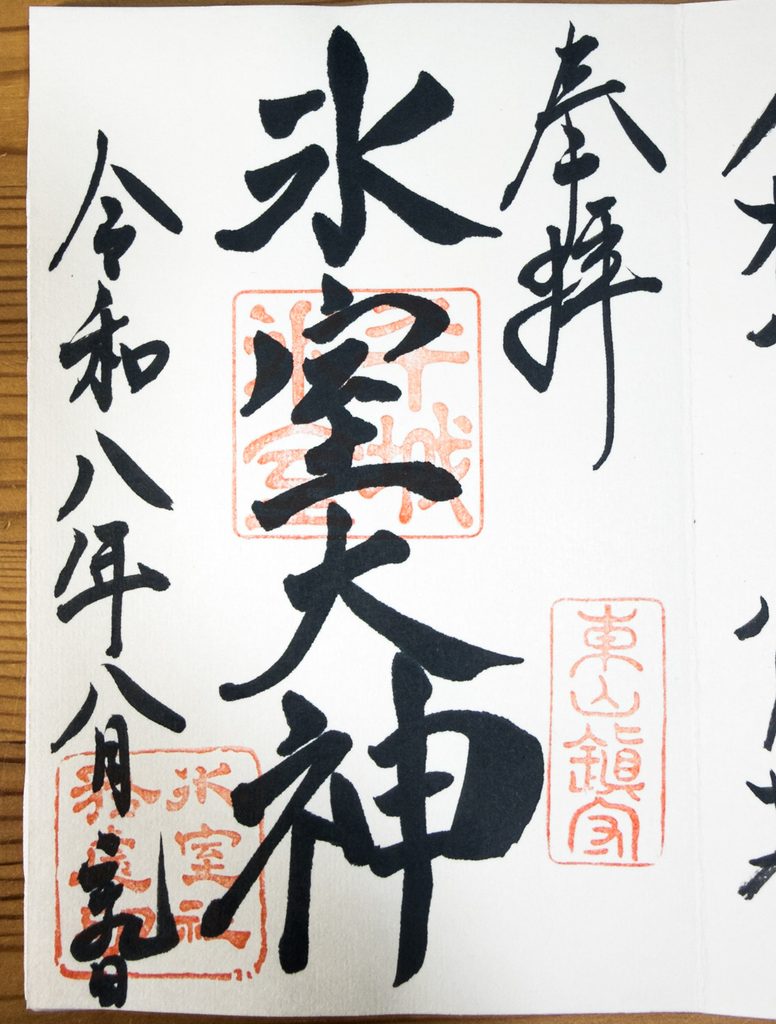 奉拝
東山鎮守
氷室大神
平城
氷室
令和八年八月 九日
氷室社